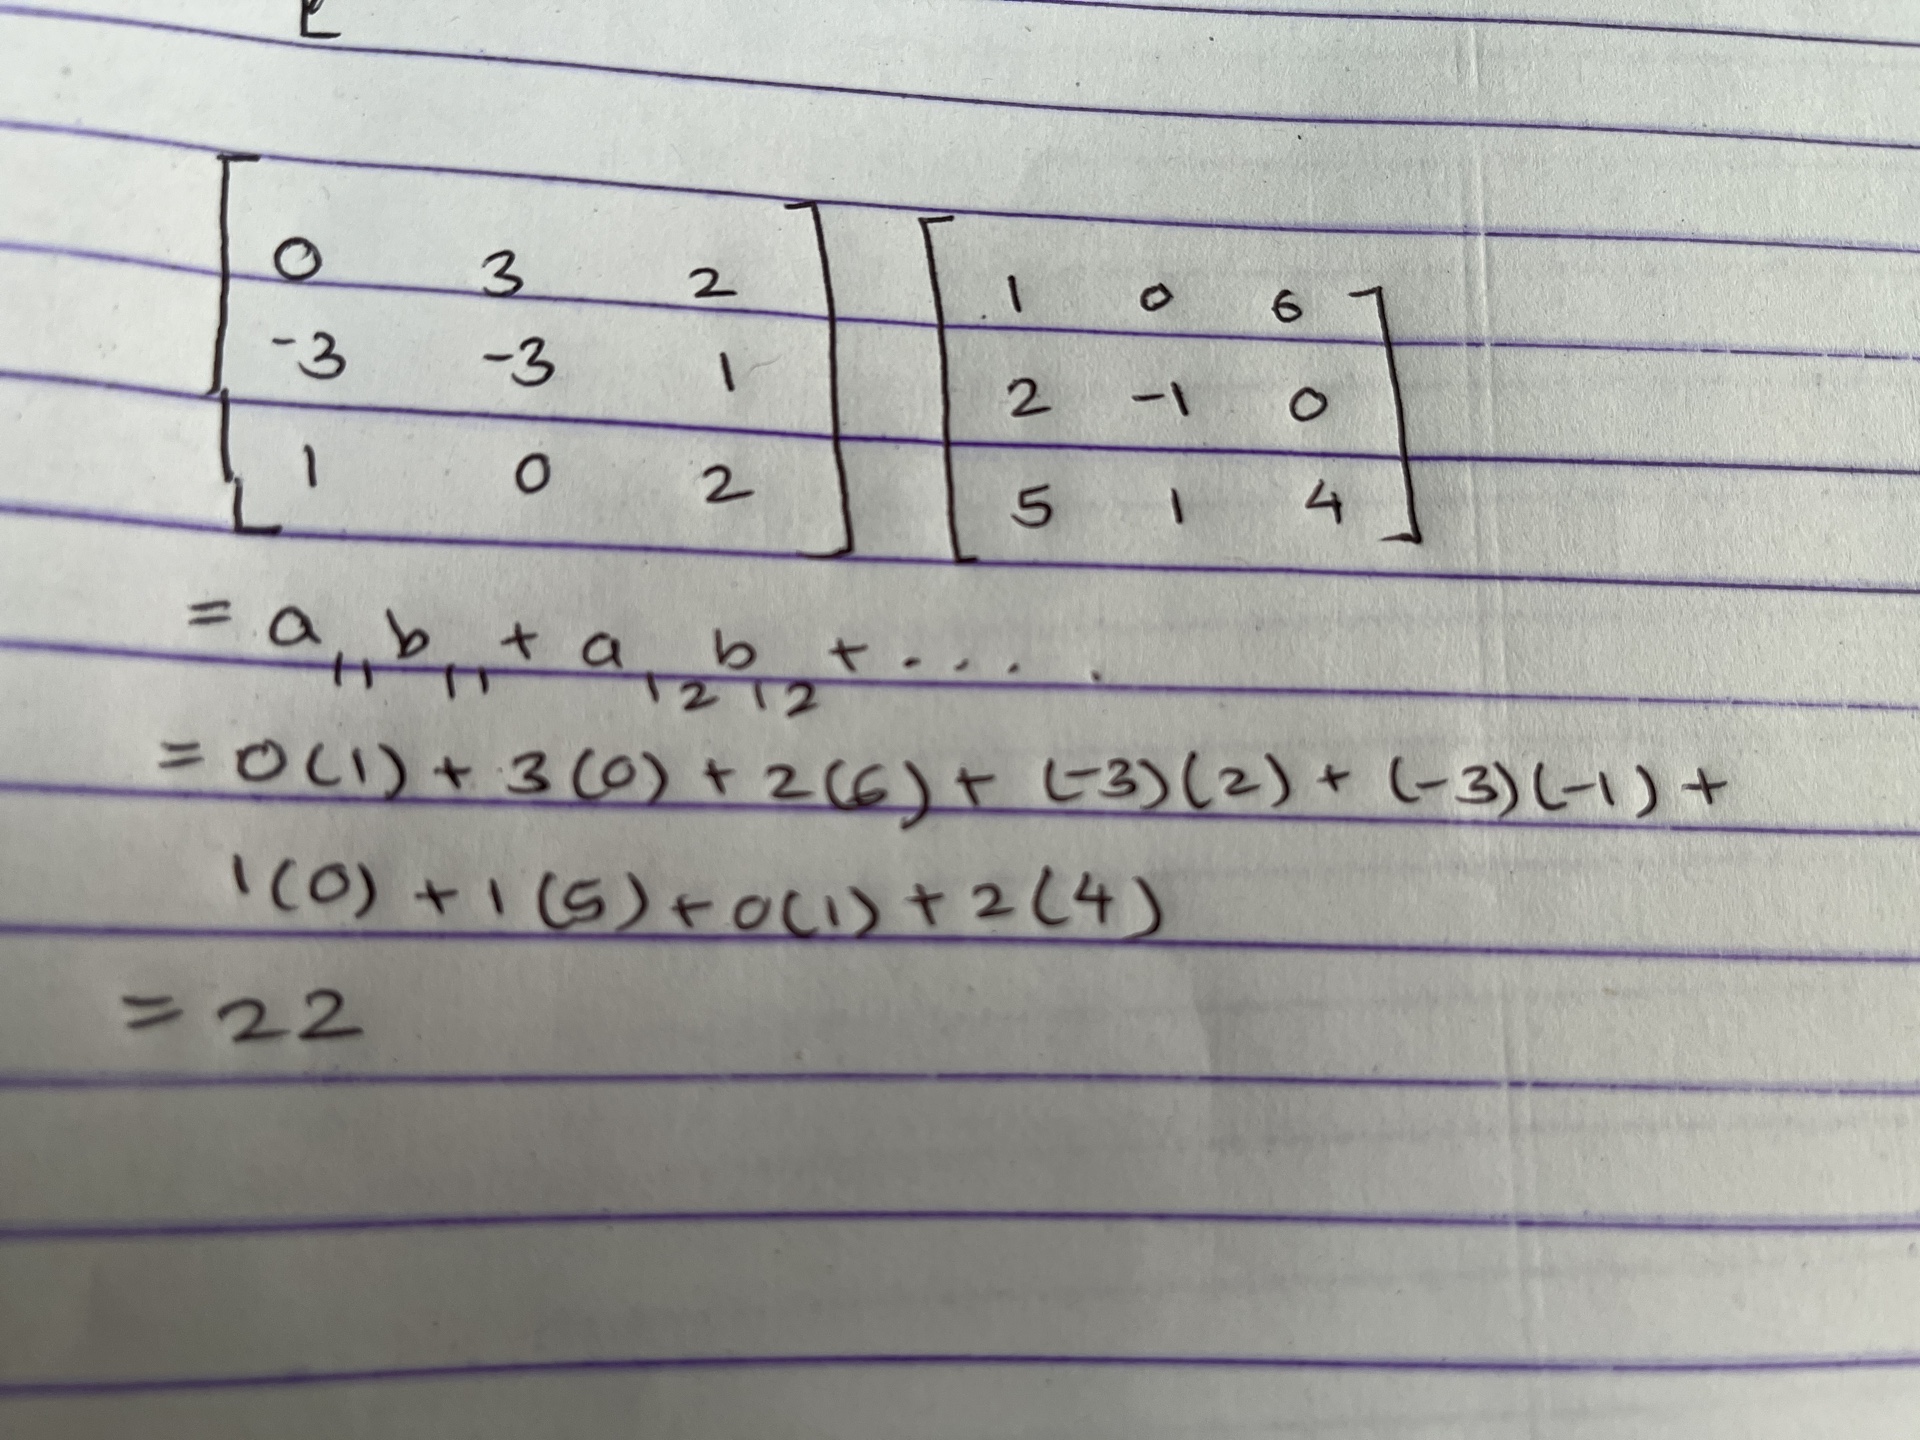 0 3 2 1 0 6
-3 -3 1 2 -1 0
1 0 2 5 1 4
= a₁₁b₁₁ + a₁₂b₁₂ + .....
= 0(1) + 3(0) + 2(6) + (-3)(2) + (-3)(-1) +
1(0) + 1(5) + 0(1) + 2(4)
= 22